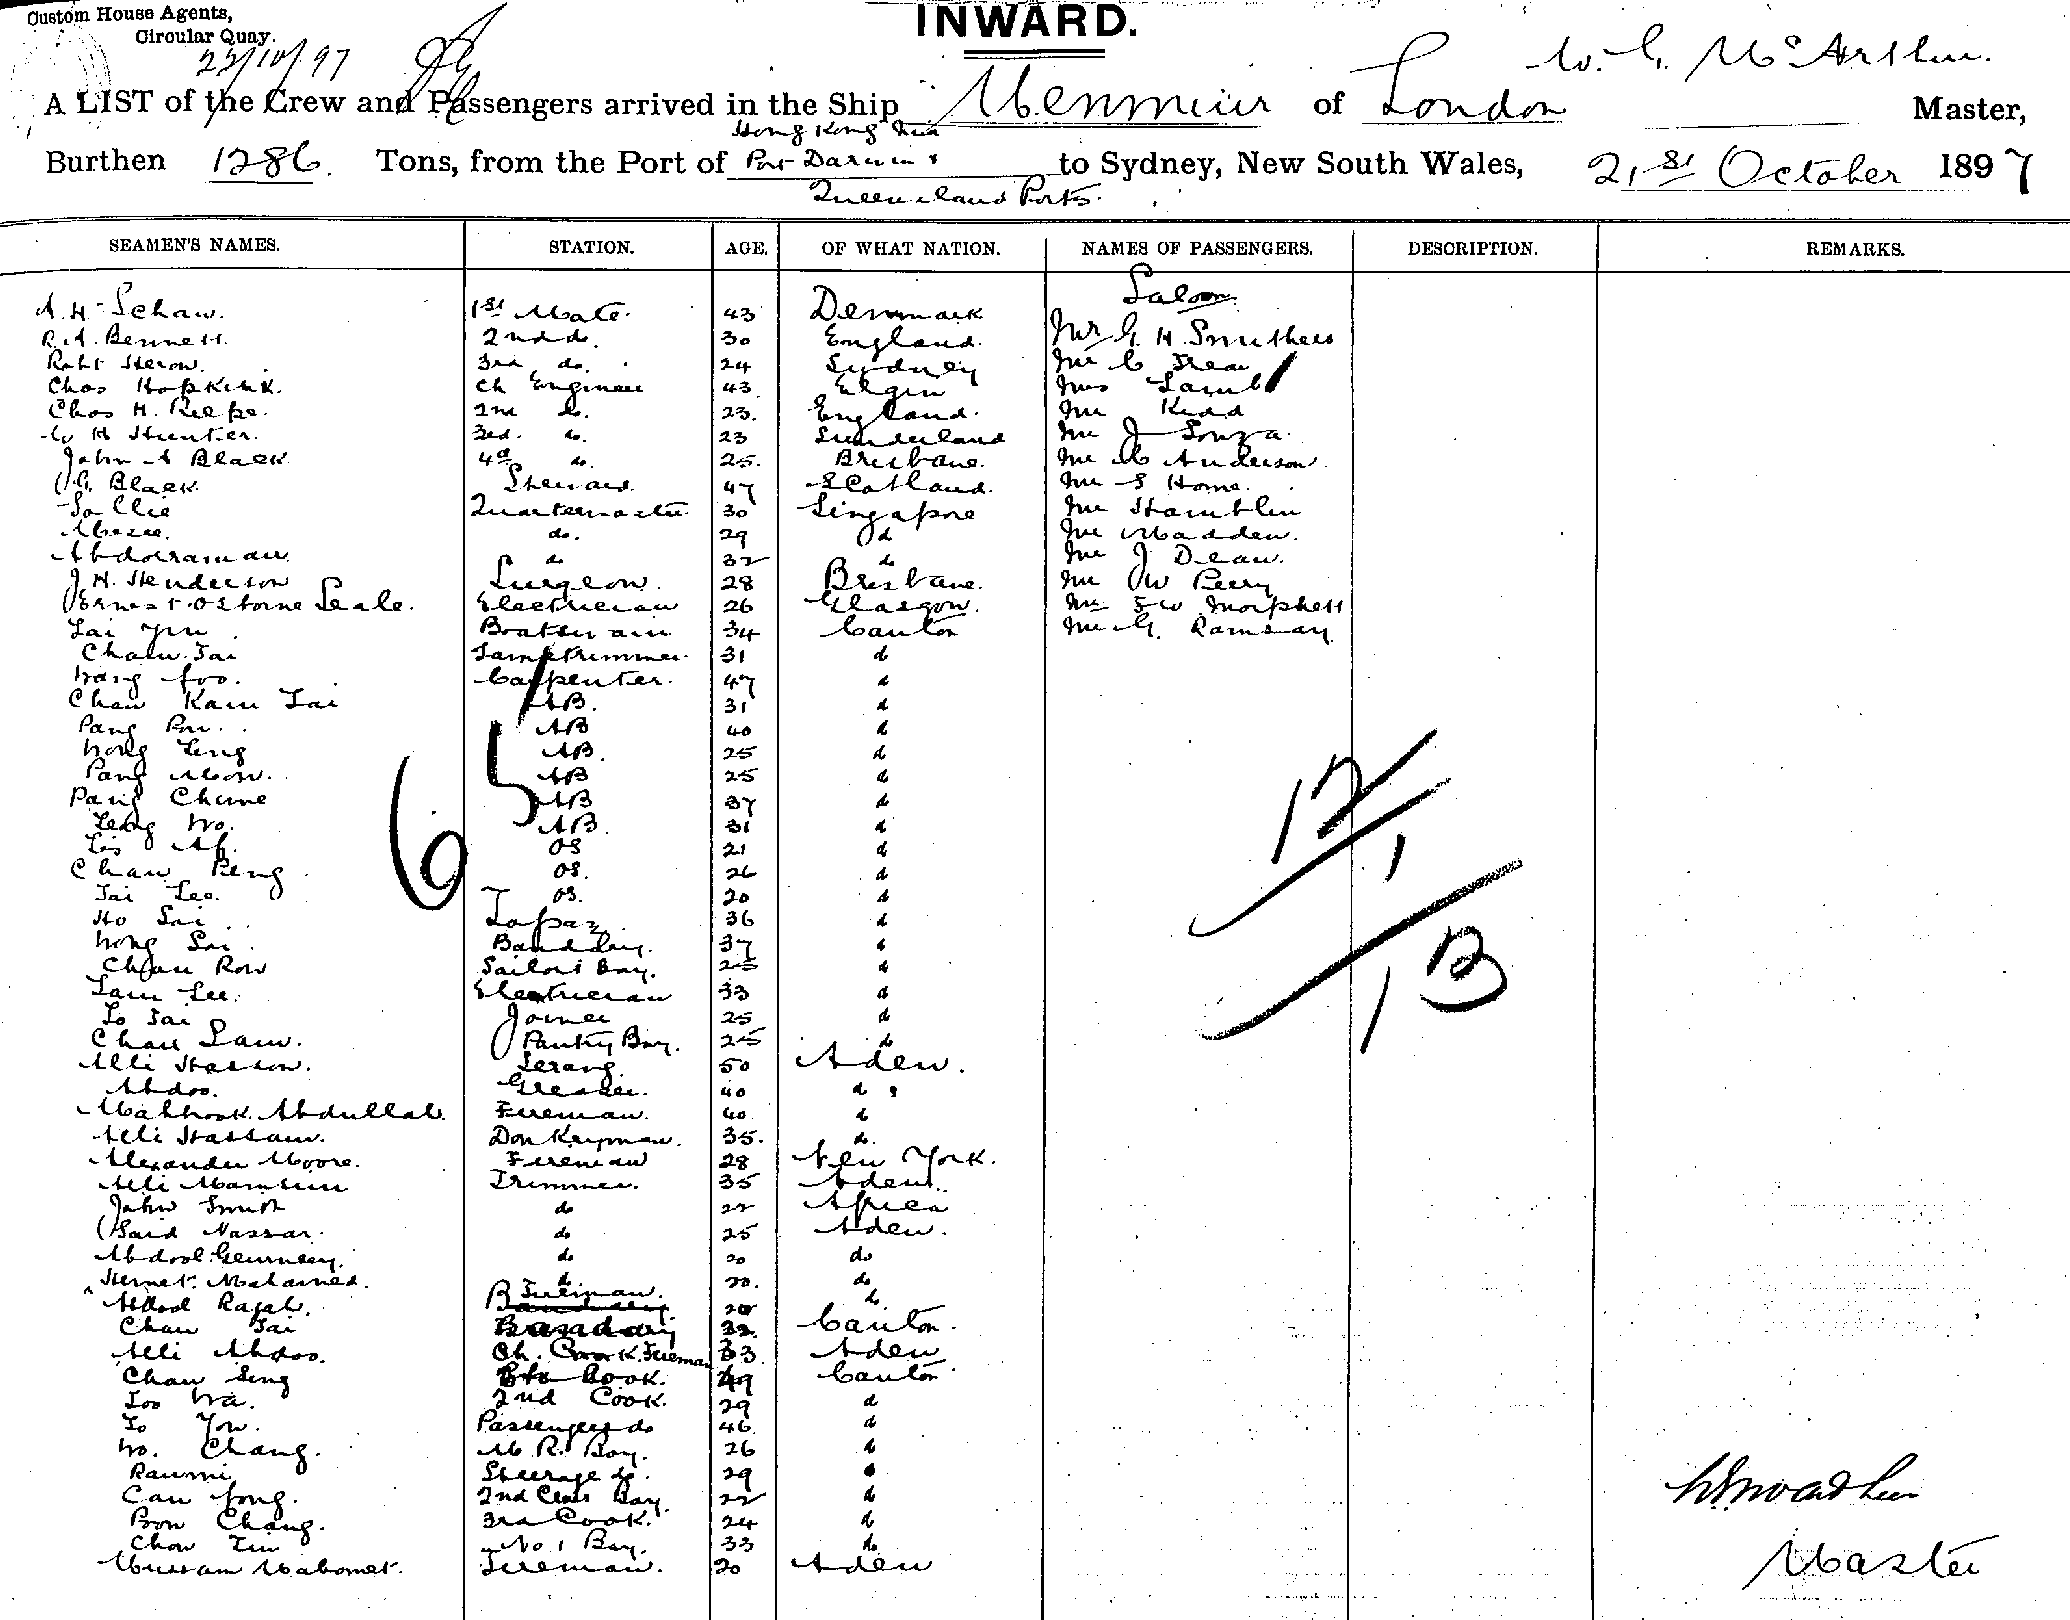 Custom House Agents,
Circular Quay.
INWARD.
22/10/97
W. G. McArthur.
A LIST of the Crew and Passengers arrived in the Ship Menmuir of London Master,
Hong Kong via
Burthen 1286. Tons, from the Port of Port Darwin & to Sydney, New South Wales, 21st October 1897
Queensland Ports.
SEAMEN'S NAMES. STATION. AGE. OF WHAT NATION. NAMES OF PASSENGERS. DESCRIPTION. REMARKS.
Saloon
A. H. Schaw. 1st Mate. 43 Denmark
R. A. Bennett. 2nd do. 30 England. Mr G. H. Smithers
Robt Heron. 3rd do. 24 Sydney Mr C
Chas Hopkirk. Ch Engineer 43 Elgin Mrs Lamb
Chas H. Riepe. 2nd do. 23. England. Mr Kidd
W H Hunter. 3rd. do. 23 Sunderland Mr J Souza.
John A Black 4th do. 25. Brisbane. Mr C Anderson.
G. Black Steward 47 Scotland. Mr S Home.
Sallie Quartermaster 30 Singapore Mr Hamblin
do. 29 do Mr Madden.
Abdorraman do 32 do Mr J Dean.
J. H. Henderson Surgeon. 28 Brisbane. Mr W Perry
Ernest Osborne Seale. Electrician 26 Glasgow. Mr F W Morphett
Lai Yin Boatswain 34 Canton Mr G. Ramsay
Chan Tai Lamptrimmer. 31 d
Wang Foo. Carpenter. 47 d
Chan Kam Tai AB. 31 d
Pang AB 40 d
Wong Ling AB. 25 d
Pang Mow. AB 25 d
Pang AB 37 d
Leong Wo. AB. 31 d
OS 21 d
Chan Peng OS. 26 d
Tai Lee. OS. 20 d
Ho Sai Topaz 36 d
Wong Sai. 37 d
Chan Row Sailors Boy. 25 d
Lam Lee. Electrician 33 d
Lo Tai Joiner 25 d
Chan Lam. Pantry Boy. 25 do
Alli Hasson. Serang. 50 Aden.
Abdoo. Greaser. 40 d
Mabhook Abdullah. Fireman. 40 d
Alli Hassam. Donkeyman. 35. do.
Alexander Moore. Fireman 28 New York.
Alli Trimmer. 35 Aden.
John Smith do 22 Africa
Said Nassar. do 25 Aden.
Abdool do 20 do
Mahamed. do 20. do
Abdool Rajab. Fireman. 20 do
Chan Tai 32. Canton.
Alli Abdoo. Fireman 33 Aden
Chan Sing Cook. 49 Canton
Loo Wa. 2nd Cook. 29 d
Lo Yow. Passengers do 46 d
Wo. Chang. M. R. Boy. 26 d
Raumi Steerage do. 29 d
Can Fong. 2nd Class Boy. 22 d
Bow Chang. 3rd Cook. 24 d
Chow No 1 Boy. 33 do.
Mussam Mahomet. Fireman. 20 Aden
6
15
12
1
13
W G McArthur
Master